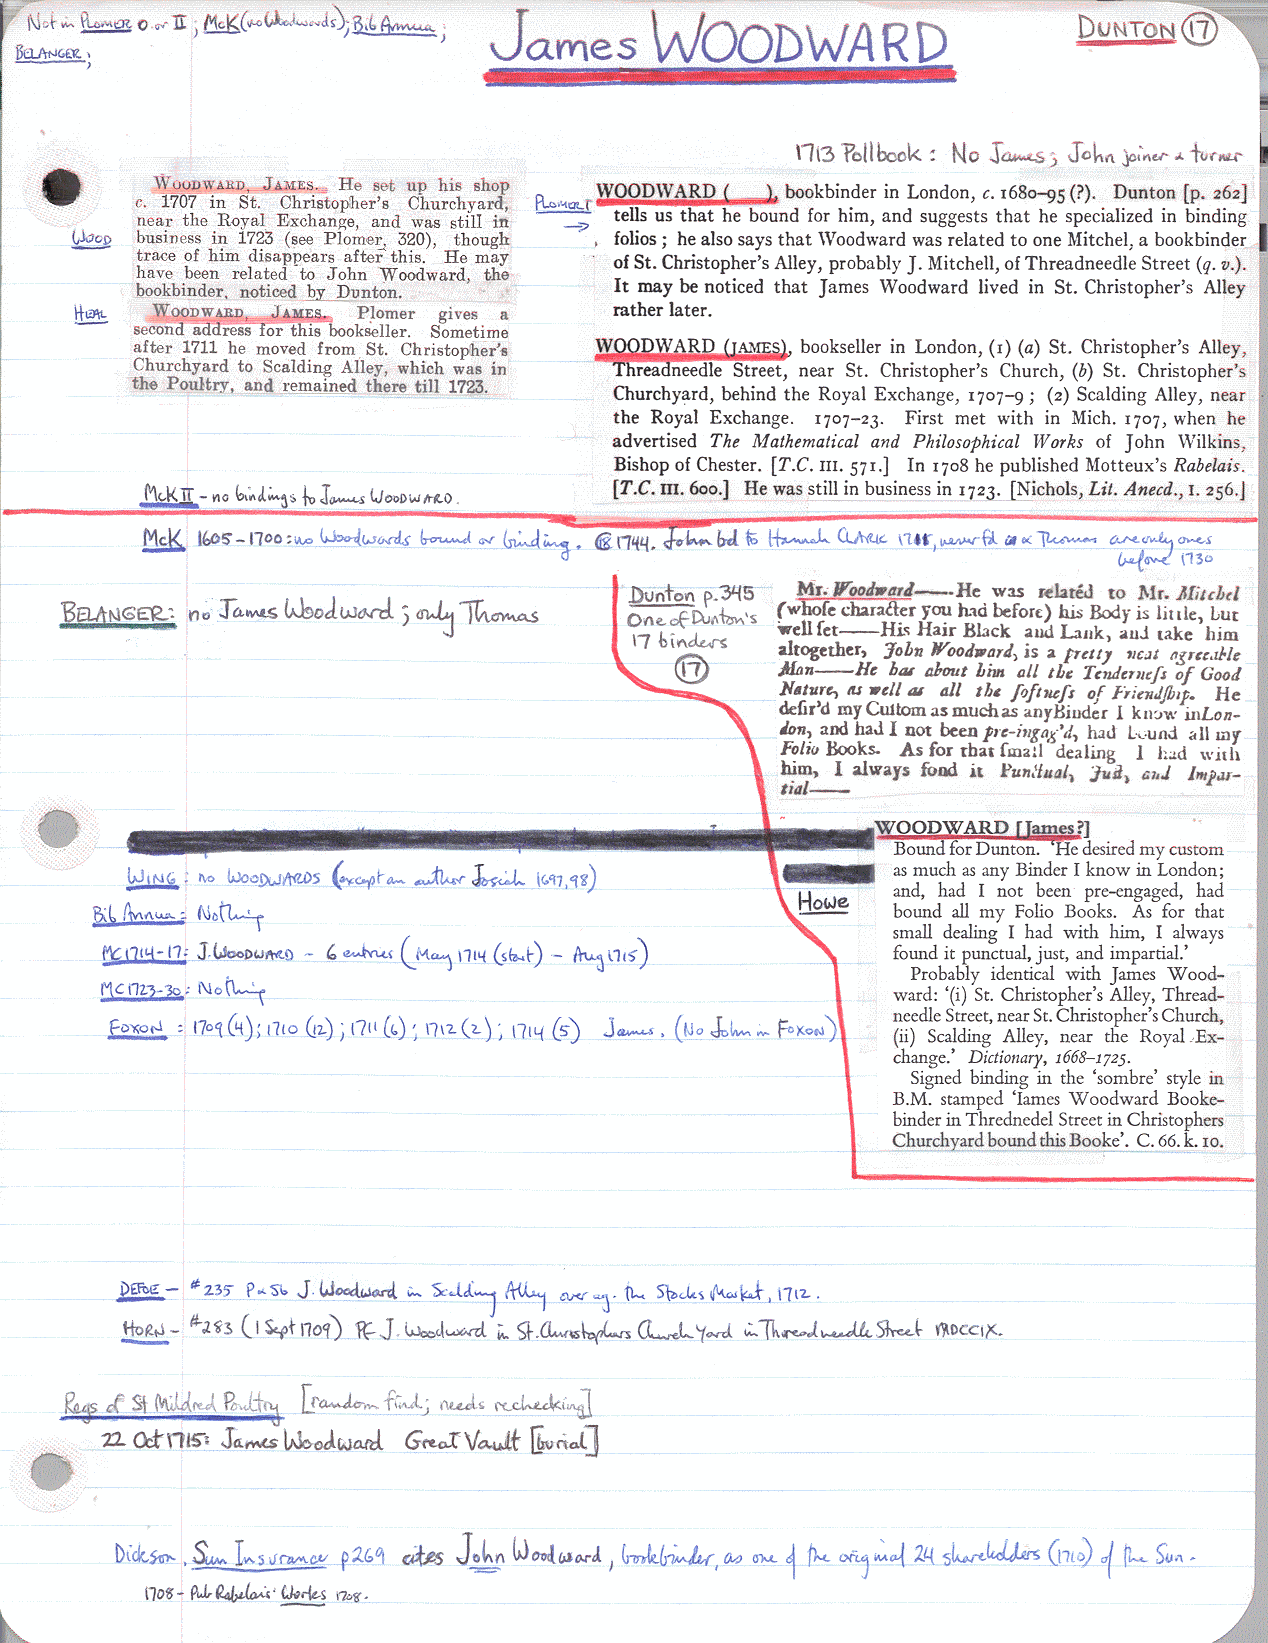 Not in PLOMER O or II; McK (no Woodwards); Bib Annua;
BELANGER;
James WOODWARD
DUNTON 17
1713 Pollbook: No James; John joiner & turner
WOOD
WOODWARD, JAMES. He set up his shop
c. 1707 in St. Christopher's Churchyard,
near the Royal Exchange, and was still in
business in 1723 (see Plomer, 320), though
trace of him disappears after this. He may
have been related to John Woodward, the
bookbinder, noticed by Dunton.
HEAL
WOODWARD, JAMES. Plomer gives a
second address for this bookseller. Sometime
after 1711 he moved from St. Christopher's
Churchyard to Scalding Alley, which was in
the Poultry, and remained there till 1723.
PLOMER I
WOODWARD ( ), bookbinder in London, c. 1680–95 (?). Dunton [p. 262]
tells us that he bound for him, and suggests that he specialized in binding
folios; he also says that Woodward was related to one Mitchel, a bookbinder
of St. Christopher's Alley, probably J. Mitchell, of Threadneedle Street (q. v.).
It may be noticed that James Woodward lived in St. Christopher's Alley
rather later.
WOODWARD (JAMES), bookseller in London, (1) (a) St. Christopher's Alley,
Threadneedle Street, near St. Christopher's Church, (b) St. Christopher's
Churchyard, behind the Royal Exchange, 1707–9; (2) Scalding Alley, near
the Royal Exchange. 1707–23. First met with in Mich. 1707, when he
advertised The Mathematical and Philosophical Works of John Wilkins,
Bishop of Chester. [T.C. III. 571.] In 1708 he published Motteux's Rabelais.
[T.C. III. 600.] He was still in business in 1723. [Nichols, Lit. Anecd., I. 256.]
McK II – no bindings to James WOODWARD.
McK 1605–1700: no Woodwards bound or binding. John bd to Hannah CLARK never fd & Thomas are only ones
before 1730
BELANGER: no James Woodward; only Thomas
Dunton p.345
One of Dunton's
17 binders
17
Mr. Woodward—He was related to Mr. Mitchel
(whoſe character you had before) his Body is little, but
well ſet—His Hair Black and Lank, and take him
altogether, John Woodward, is a pretty neat agreeable
Man—He has about him all the Tenderneſs of Good
Nature, as well as all the ſoftneſs of Friendſhip. He
deſir'd my Cuſtom as much as any Binder I know in Lon-
don, and had I not been pre-ingag'd, had bound all my
Folio Books. As for that ſmall dealing I had with
him, I always fond it Punctual, Juſt, and Impar-
tial—
Howe
WOODWARD [James?]
Bound for Dunton. 'He desired my custom
as much as any Binder I know in London;
and, had I not been pre-engaged, had
bound all my Folio Books. As for that
small dealing I had with him, I always
found it punctual, just, and impartial.'
Probably identical with James Wood-
ward: '(i) St. Christopher's Alley, Thread-
needle Street, near St. Christopher's Church,
(ii) Scalding Alley, near the Royal Ex-
change.' Dictionary, 1668–1725.
Signed binding in the 'sombre' style in
B.M. stamped 'Iames Woodward Booke-
binder in Thrednedel Street in Christophers
Churchyard bound this Booke'. C. 66. k. 10.
WING: no WOODWARDS (except an author Josiah 1697,98)
Bib Annua: Nothing
MC1714–17: J. WOODWARD – 6 entries (May 1714 (start) – Aug 1715)
MC1723–30: Nothing
FOXON: 1709 (4); 1710 (12); 1711 (6); 1712 (2); 1714 (5) James. (No John in FOXON)
DEFOE – #235 P & Sb J. Woodward in Scalding Alley over ag. the Stocks Market, 1712.
HORN – #283 (1 Sept 1709) PF J. Woodward in St. Christophers Church Yard in Threadneedle Street MDCCIX.
Regs of St Mildred Poultry [random find; needs rechecking]
22 Oct 1715: James Woodward Great Vault [burial]
Dickson, Sun Insurance p269 cites John Woodward, bookbinder, as one of the original 24 shareholders (1710) of the Sun.
1708 – Pub Rabelais' Works 1708.